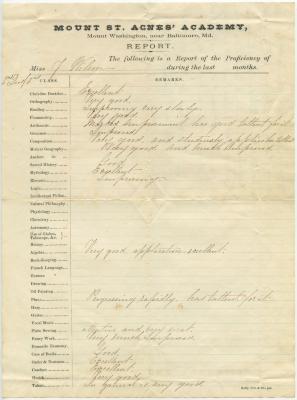 MOUNT ST. AGNES' ACADEMY,
Mount Washington, near Baltimore, Md.
REPORT.
The following is a Report of the Proficiency of
Miss J. Wilson during the last months.
CLASS. REMARKS.
Christian Doctrine Excellent
Orthography Very good
Reading Improving very slowly
Penmanship Very good
Arithmetic has good talent for it
Grammar Improved
Composition Very good, and studiously applies
Modern Geography Very good and much improved
Ancient "
Sacred History Good
Mythology Excellent
Rhetoric Improving
Logic
Intellectual Philos.
Natural Philosophy
Physiology
Chemistry
Astronomy
Use of Globes,
Telescope, &c.
Botany
Algebra Very good, application excellent.
Book-keeping
French Language
German "
Drawing
Oil Painting
Piano Progressing rapidly, has talent for it.
Harp
Guitar
Vocal Music
Plain Sewing and very neat.
Fancy Work Very much improved
Domestic Economy
Care of Books Good
Order & Neatness Excellent
Conduct Excellent
Health Very good
Talent In general is very good